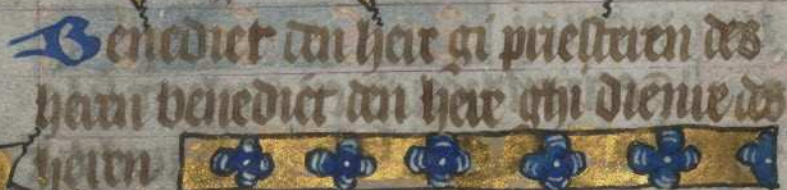 Benedict den here gi priesteren des
heren benedict den here ghi dienre des
heren